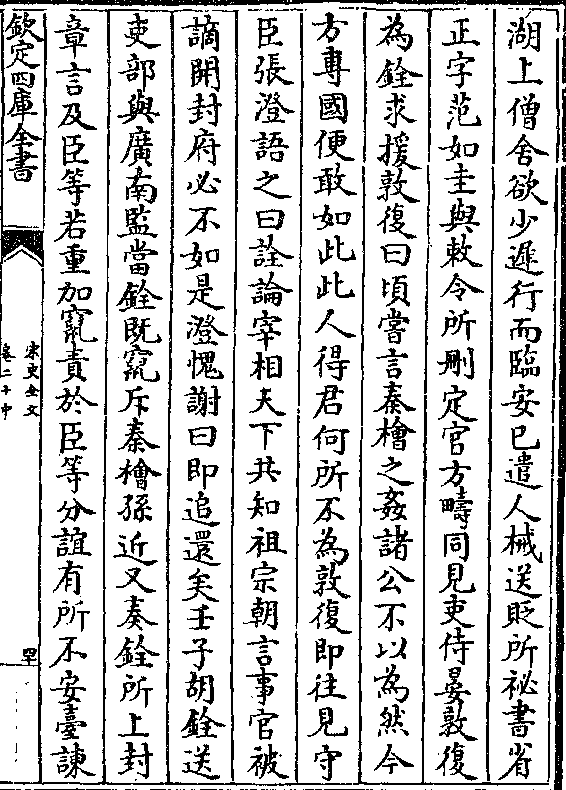 湖上僧舎欲少遲行而臨安已遣人械送貶所祕書省
正字范如圭與敕令所刪定官方疇同見吏侍晏敦復
為銓求援敦復曰頃嘗言秦檜之姦諸公不以為然今
方專國便敢如此此人得君何所不為敦復即往見守
臣張澄語之曰詮論宰相天下共知祖宗朝言事官被
謫開封府必不如是澄愧謝曰即追還矣壬子胡銓送
吏部與廣南監當銓既竄斥秦檜孫近又奏銓所上封
章言及臣等若重加竄責於臣等分誼有所不安臺諫
欽定四庫全書
宋史全文
卷二十中
四十